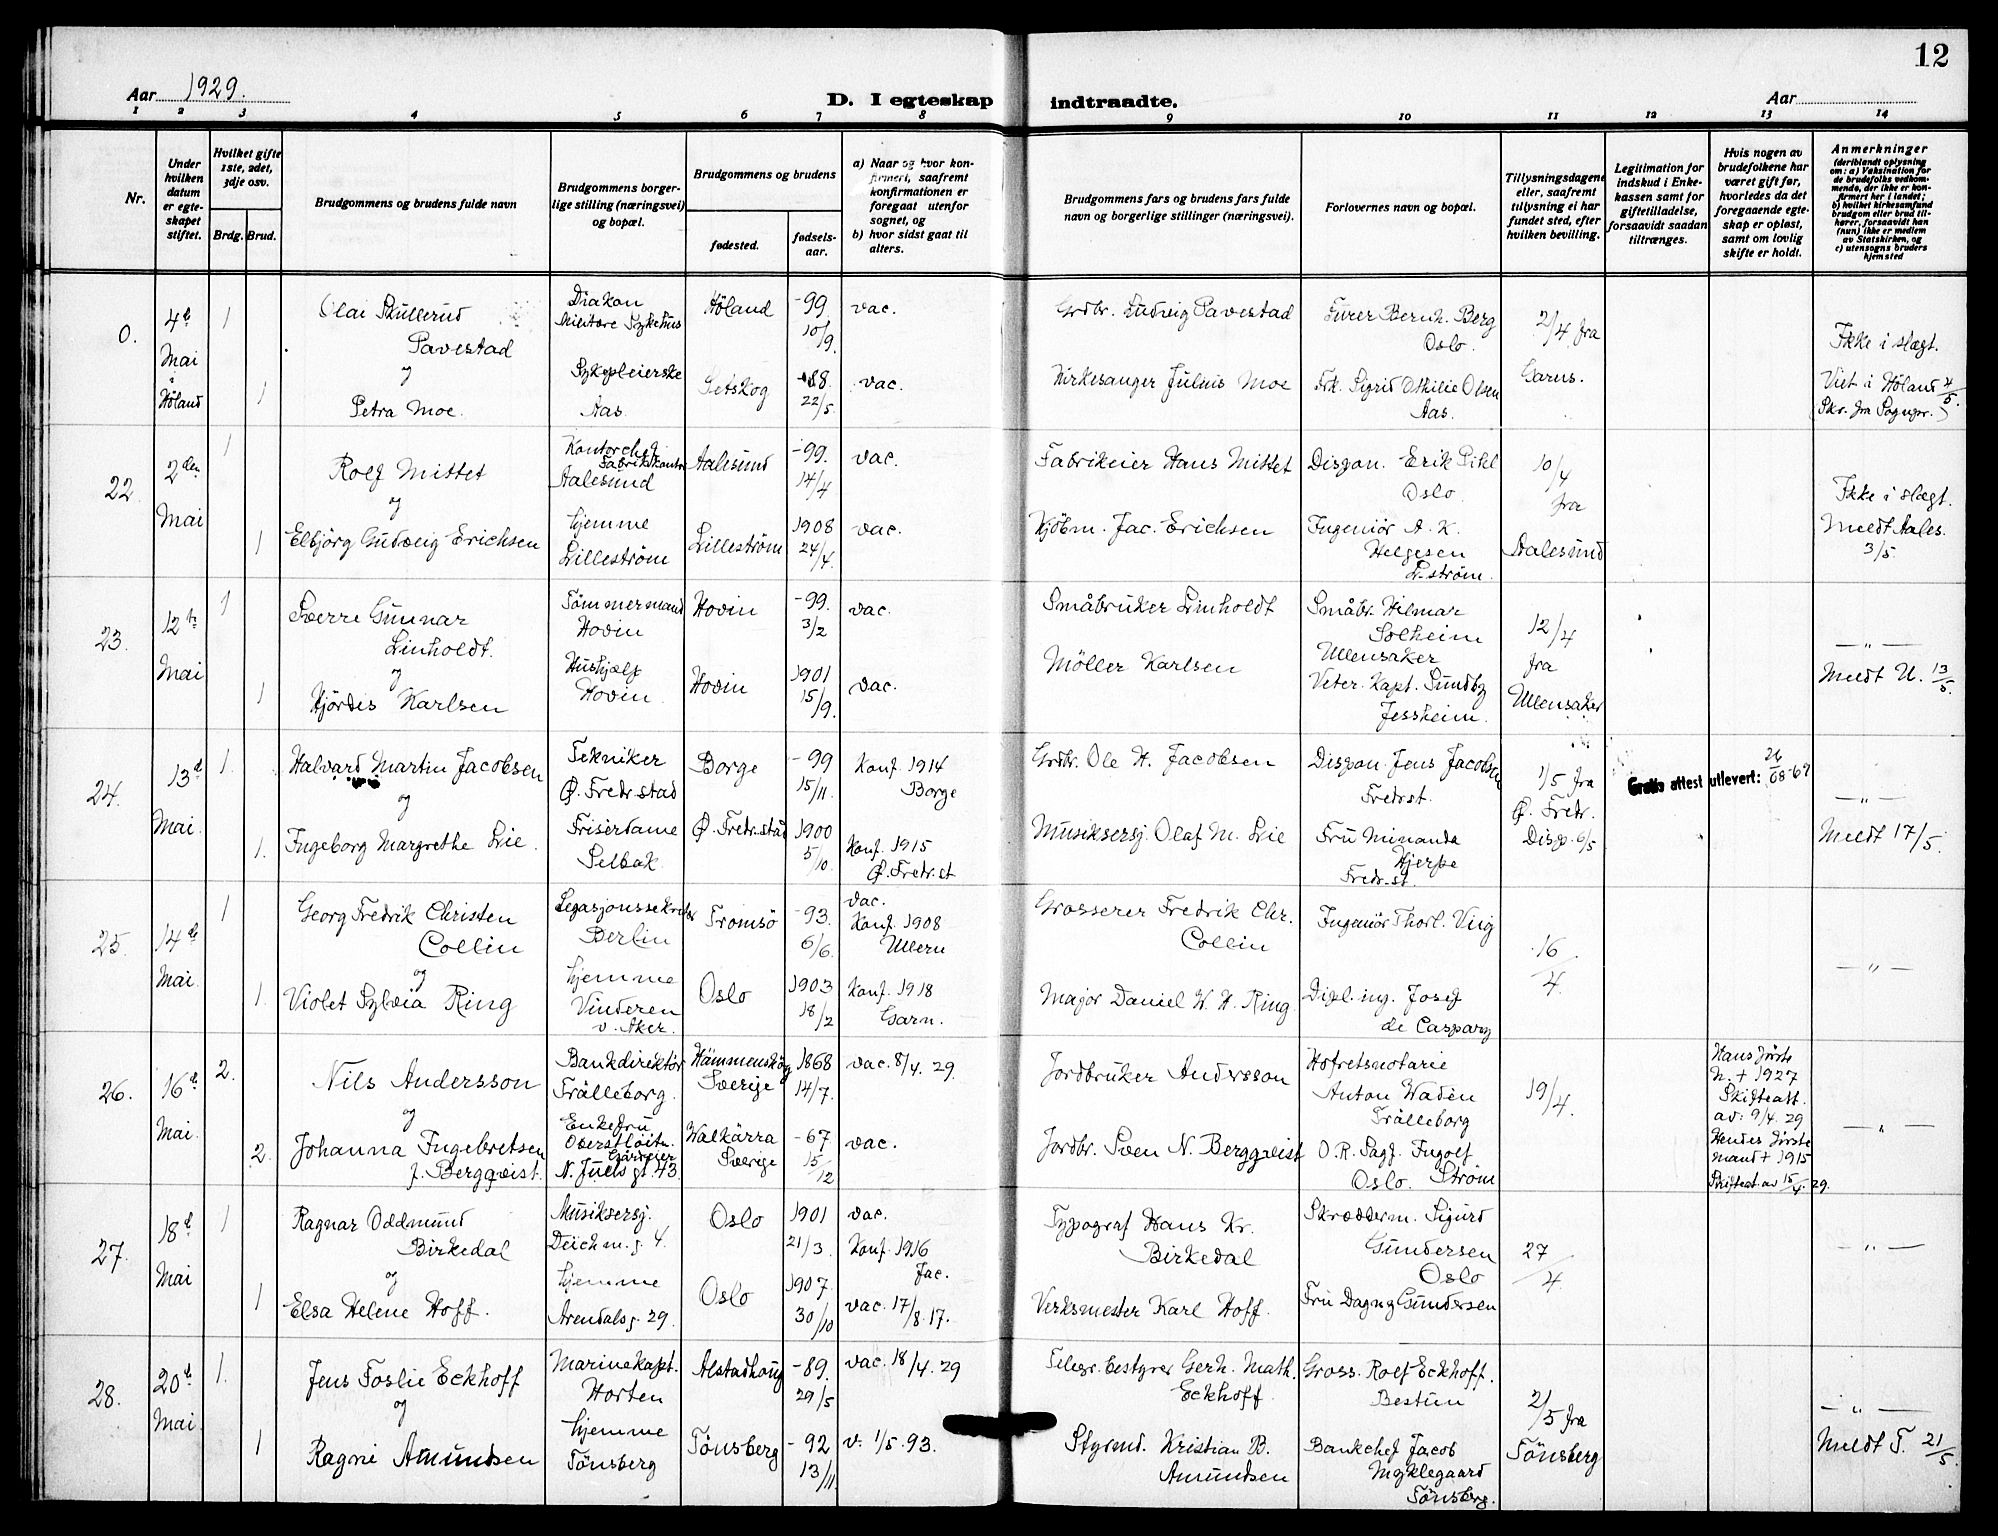 12
Aar 1929.
D. I egteskap
indtraadte.
Aar
1 2 3 4 5 6 7 8 9 10 11 12 13 14
Nr.
Under hvilken datum er egteskapet stiftet.
Hvilket gifte 1ste, 2det, 3dje osv.
Brdg. Brud.
Brudgommens og brudens fulde navn
Brudgommens borgerlige stilling (næringsvei) og bopæl.
Brudgommens og brudens
fødested.
fødselsaar.
a) Naar og hvor konfirmert, saafremt konfirmationen er foregaat utenfor sognet, og
b) hvor sidst gaat til alters.
Brudgommens fars og brudens fars fulde navn og borgerlige stillinger (næringsvei).
Forlovernes navn og bopæl.
Tillysningsdagene eller, saafremt tillysning ei har fundet sted, efter hvilken bevilling.
Legitimation for indskud i Enkekassen samt for giftetilladelse, forsaavidt saadan tiltrænges.
Hvis nogen av brudefolkene har været gift før, hvorledes da det foregaaende egteskap er opløst, samt om lovlig skifte er holdt.
Anmerkninger
(deriblandt oplysning om: a) Vaksination for de brudefolks vedkommende, der ikke er konfirmert her i landet;
b) hvilket kirkesamfund brudgom eller brud tilhører, forsaavidt han (hun) ikke er medlem av Statskirken, og
c) utensogns bruders hjemsted
0. 4de Mai i Höland
1
Olai Skullerud Pavestad
Diakon Militære Sykehus
Höland
-99. 10/9.
vac.
Grdbr. Ludvig Pavestad
Furer Bernh. Berg Oslo.
2/4 fra Garns.
Ikke i slægt.
og
1
Petra Moe.
Sykepleierske Aas.
Setskog
-88. 22/5
vac.
Kirkesanger Julius Moe
Frk. Sigrid Othilie Olsen Aas.
Viet i Höland 4/5.
(Skr. fra Sognpr.)
22 2den Mai
1
Rolf Mittet
Kontorchef Fabrikkontor Aalesund
Aalesund
-99. 14/4
vac.
Fabrikeier Hans Mittet
Dispon. Erik Pihl Oslo.
10/4 fra Aalesund
Ikke i slægt.
og
1
Elbjörg Gudveig Erichsen
hjemme Lilleström
Lilleström
1908 24/4.
vac.
Kjöbm. Jac. Erichsen
Ingeniör A. K. Helgesen L.ström.
Meldt Aales. 3/5.
23. 12te Mai
1
Sverre Gunnar Linholdt.
Tömmermand Hovin
Hovin
-99. 3/2
vac.
Småbruker Linholdt
Småbr. Hilmar Solheim Ullensaker
12/4 fra Ullensaker
— „ —
og
1
Hjördis Karlsen
Hushjelp Hovin.
Hovin
1901 15/9.
vac.
Möller Karlsen
Veter. Kapt. Sundby Jessheim.
Meldt U. 13/5.
24. 13de Mai.
1.
Halvard Martin Jacobsen
Tekniker Ø. Fredr.stad
Borge
-99 15/11.
Konf. 1914 Borge
Grdbr. Ole H. Jacobsen
Dispon. Jens Jacobsen Fredrst.
1/5 fra Ø. Fredr.
Disp. 6/5
Gratis attest utlevert: 26/08-69
— „ —
og
1.
Ingeborg Margrethe Lie.
Friserdame Selbak.
Ø. Fredr.stad
1900 5/10
Konf. 1915 Ø. Fredr.st
Musiksersj. Olaf M. Lie
Fru Minanda Hjerpe Fredr.st.
Meldt 17/5.
25. 14de Mai.
1
Georg Fredrik Christen Collin
Legasjonssekretær Berlin
Tromsö
-93. 6/6
vac. Konf. 1908 Ullern
Grosserer Fredrik Chr. Collin
Ingeniör Thorl. Viig
16/4.
— „ —
og
1.
Violet Sylvia Ring
hjemme Vinderen v. Aker.
Oslo
1903 18/2
Konf. 1918 Garn.
Major Daniel W. H. Ring
Dipl. ing. Josef de Caspary
26. 16de Mai.
2.
Nils Andersson
Bankdirektör Trälleborg.
Hämmenskög Sverige
1868 14/7.
vac. 8/4. 29.
Jordbruker Andersson
Hofretsnotarie Anton Wadén Trälleborg
19/4.
Hans förste h. † 1927 Skifteatt. av: 9/4. 29
— „ —
og
2.
Johanna Ingebretsen f. Bergqvist.
Enkefru Oberstlöitn. Gårdeier N. Juels gt. 43.
Walkärra Sverige
-67 15/12
vac.
Jordbr. Sven N. Bergqvist
O.R. Sagf. Ingolf Ström Oslo.
Hendes förste mand † 1915 Skifteat. av 15/4. 29.
27. 18de Mai
1
Ragnar Oddmund Birkedal
Musiksersj. Deichm.g. 4.
Oslo
1901 21/3.
vac. Konf. 1916 Jac.
Typograf Hans Kr. Birkedal
Skrædderm. Sigurd Gundersen Oslo
27/4
— „ —
og
1
Elsa Helene Hoff.
hjemme Arendalsg. 29.
Oslo
1907. 30/10
vac. 17/8. 17.
Verksmester Karl Hoff.
Fru Dagny Gundersen
28. 20de Mai.
1.
Jens Foslie Eckhoff
Marinekapt. Horten
Alstadhaug
-89. 29/5
vac. 18/4. 29
Telegr. bestyrer Gerh. Math. Eckhoff.
Gross. Rolf Eckhoff. Bestun
2/5 fra Tönsberg
— „ —
og
1
Ragni Amundsen
hjemme Tönsberg
Tönsberg
-92 13/11
v. 1/5. 93.
Styrmd. Kristian B. Amundsen
Bankchef Jacob Myklegaard Tönsberg.
Meldt T. 21/5.